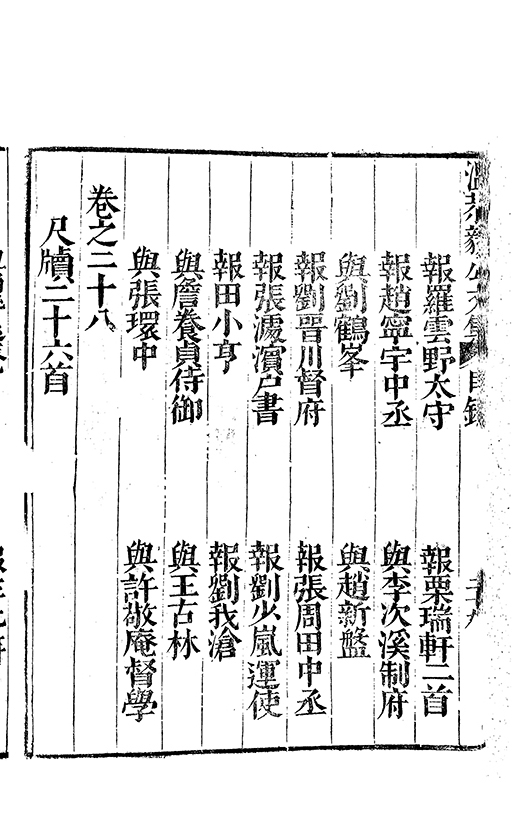 溫恭毅公文集 目錄 二十九
報羅雲野太守 報栗瑞軒二首
報趙寧宇中丞 與李次溪制府
與劉鶴峯 與趙新盤
報劉晉川督府 報張周田中丞
報張濾濱戸書 報劉少嵐運使
報田小亨 報劉我滄
與詹養貞侍御 與王古林
與張環中 與許敬庵督學
卷之二十八
尺牘二十六首